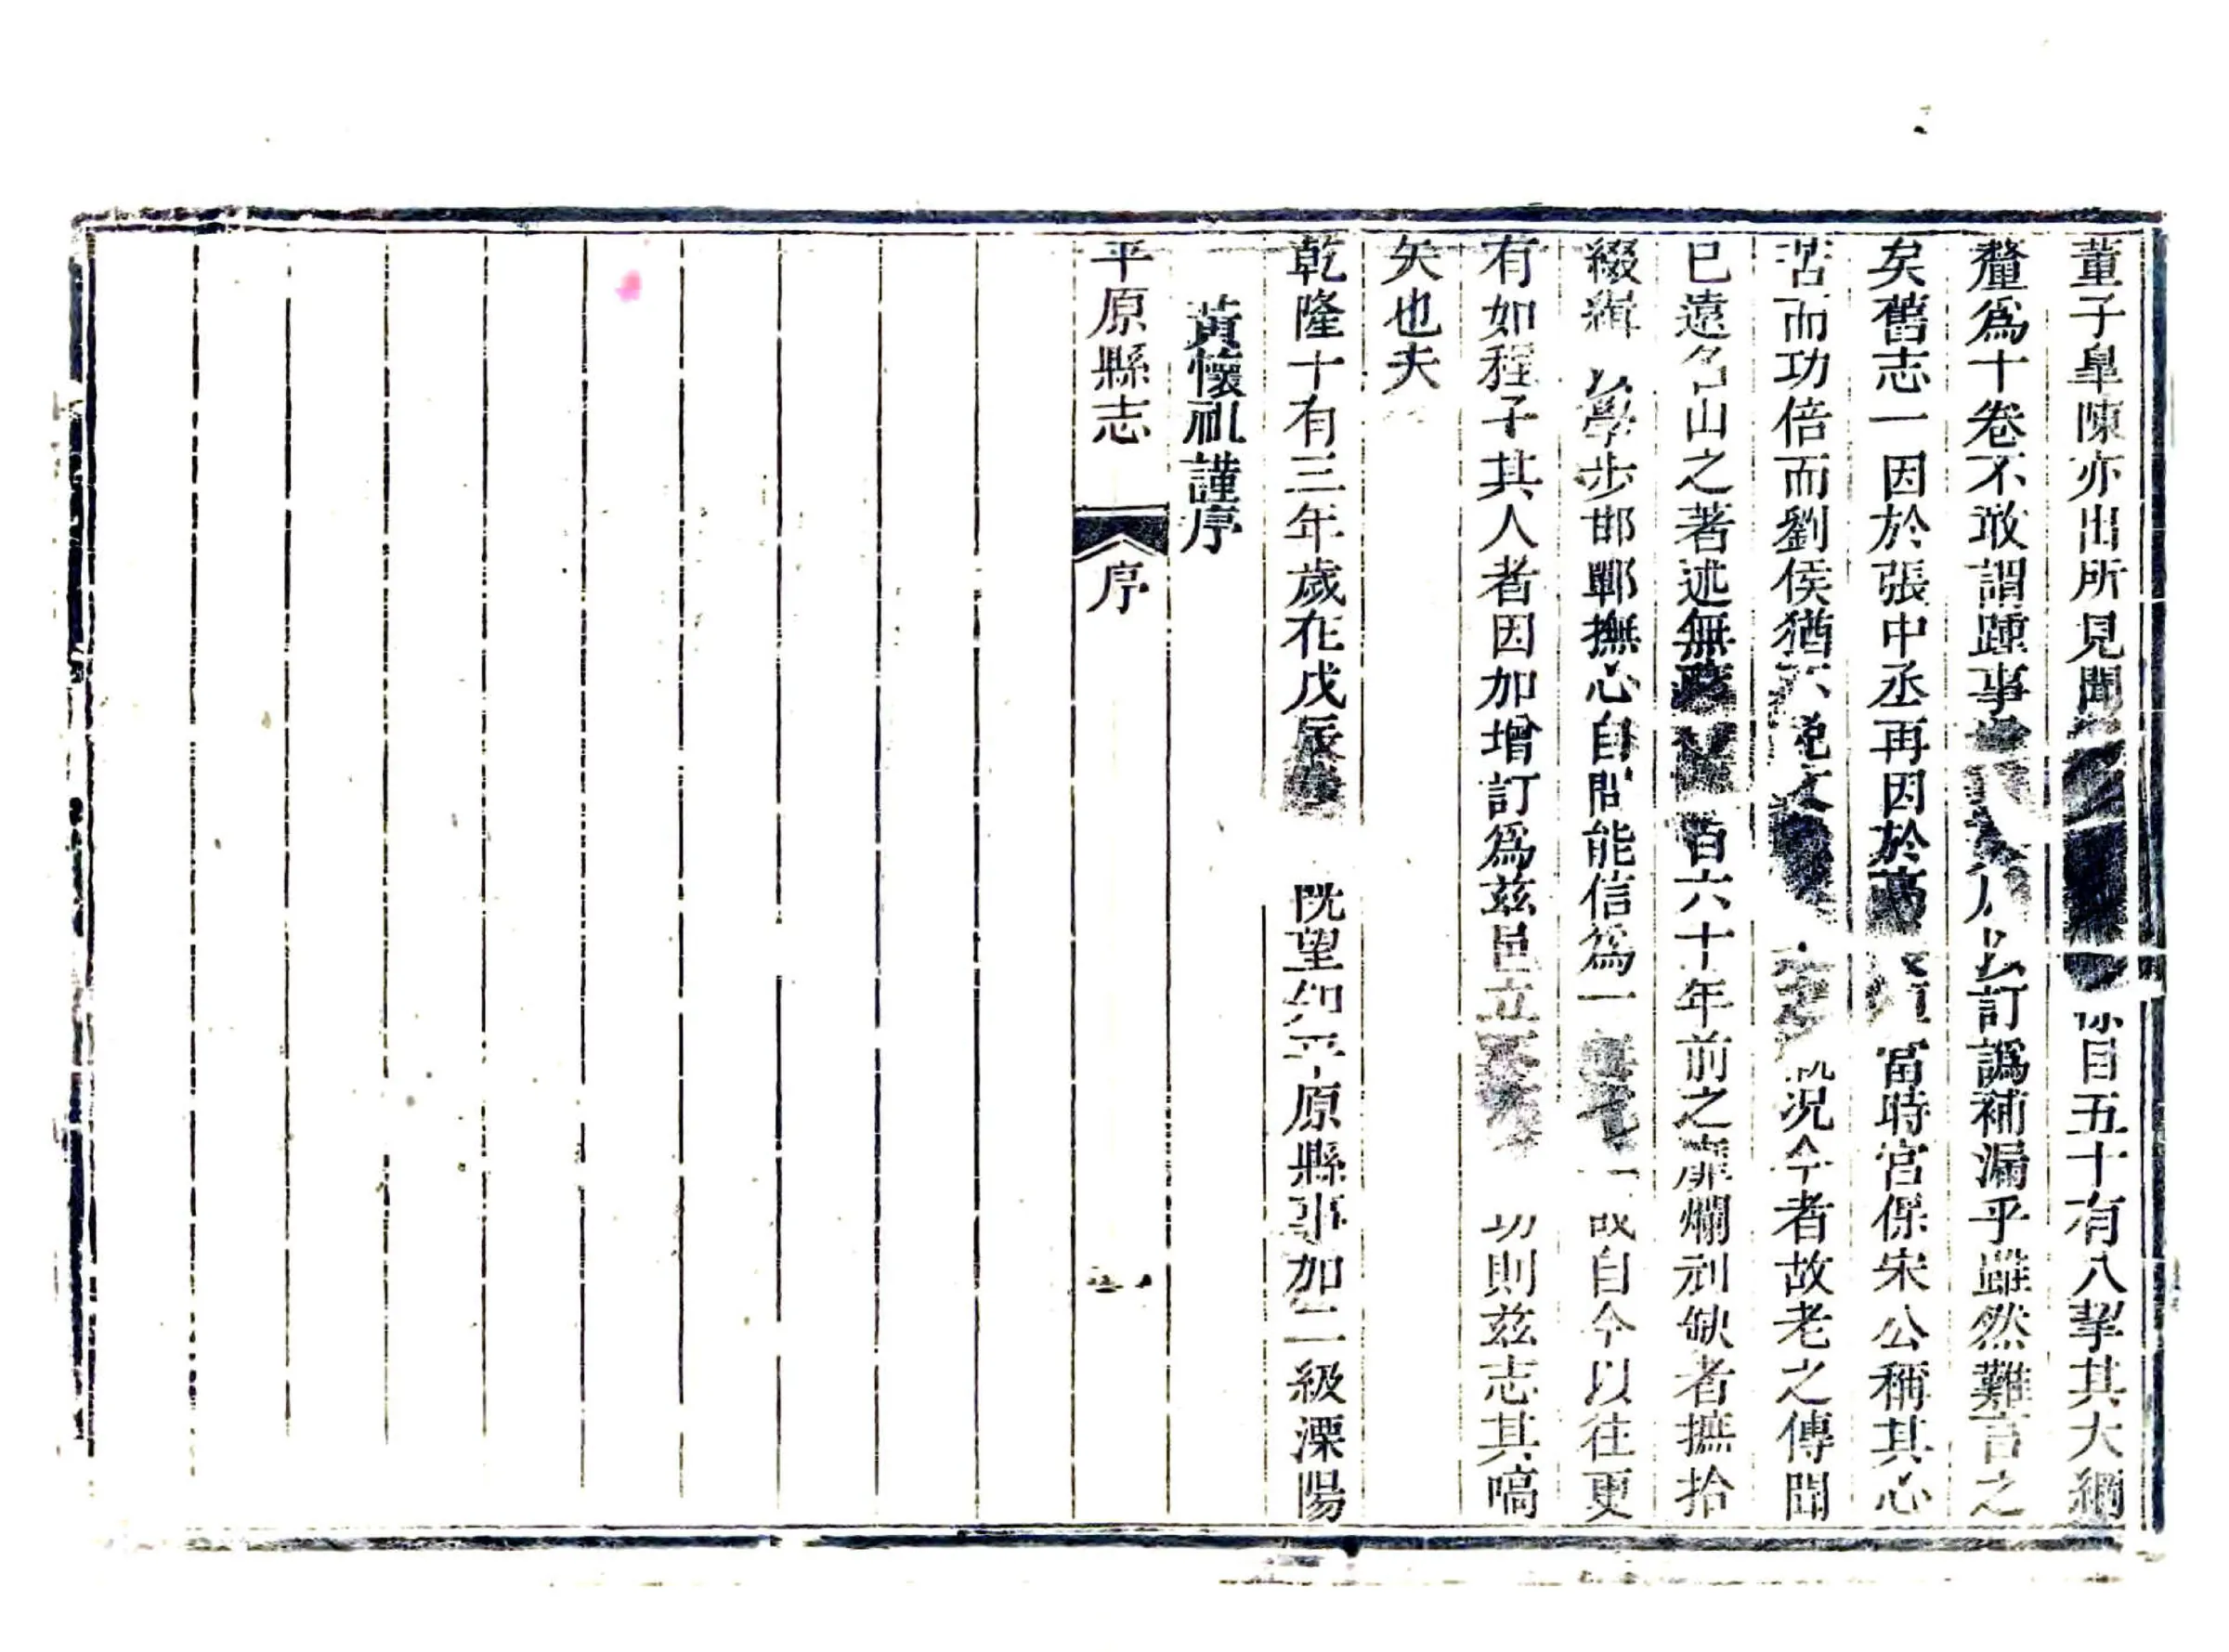 董子皐陳亦出所見聞目五十有八挈其大綱
釐爲十卷不敢謂踵事以訂譌補漏乎雖然難言之
矣舊志一因於張中丞再因於當時宮保宋公稱其心
苦而功倍而劉侯猶況今者故老之傳聞
已遠名山之著述無百六十年前之靡爛刓缺者摭拾
綴緝以學步邯鄲撫心自問能信爲一或自今以往更
有如程子其人者因加增訂爲茲邑立切則茲志其嚆
矢也夫
乾隆十有三年歲在戊辰既望知平原縣事加二級溧陽
黃懷祉謹序
平原縣志 序